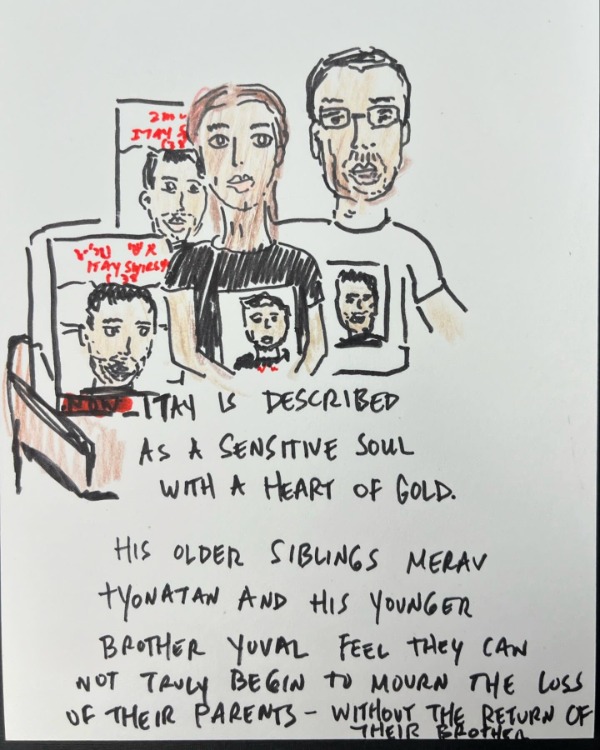 ITAY
ITAY SVIRSKY
38
ITAY IS DESCRIBED
AS A SENSITIVE SOUL
WITH A HEART OF GOLD.
HIS OLDER SIBLINGS MERAV
+YONATAN AND HIS YOUNGER
BROTHER YUVAL FEEL THEY CAN
NOT TRULY BEGIN TO MOURN THE LOSS
OF THEIR PARENTS - WITHOUT THE RETURN OF
THEIR BROTHER